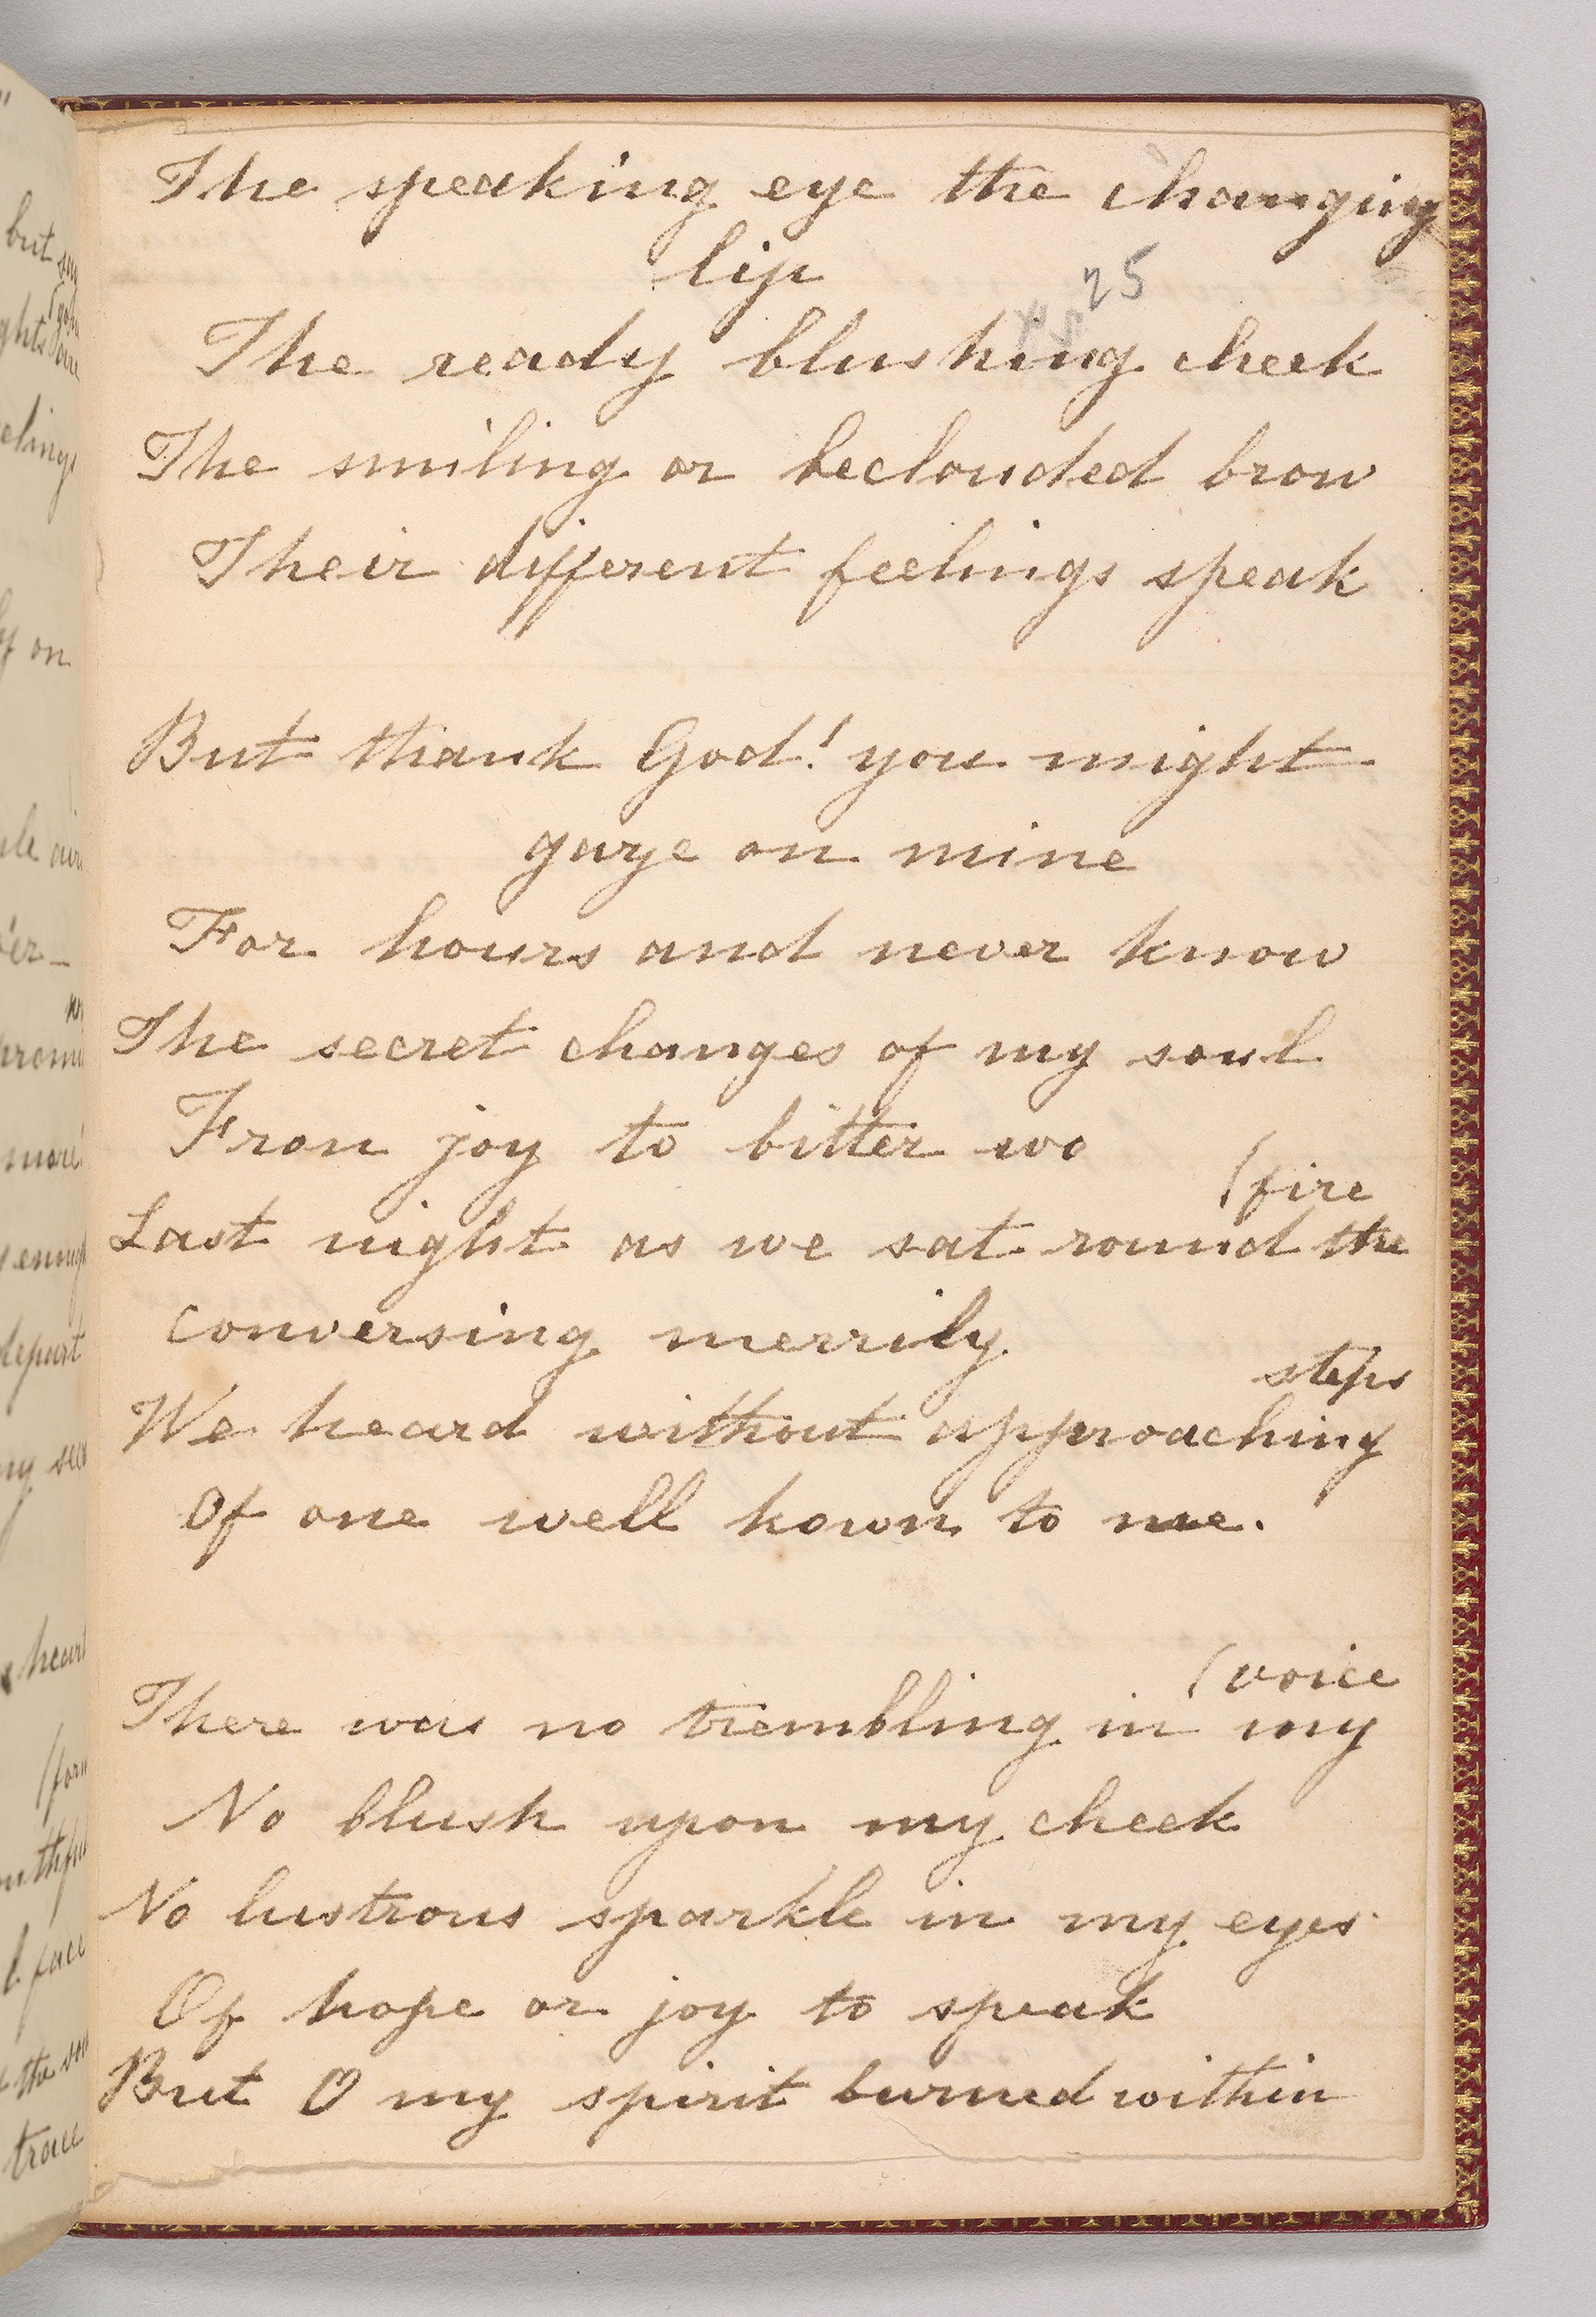 The speaking eye the changing
lip
25
The ready blushing cheek
The smiling or beclouded brow
Their different feelings speak
But thank God! you might
gaze on mine
For hours and never know
The secret changes of my soul
From joy to bitter wo
(fire
Last night as we sat round the
conversing merrily
steps
We heard without approaching
Of one well kown to me.
(voice
There was no trembling in my
No blush upon my cheek
No lustrous sparkle in my eyes
Of hope or joy to speak
But O my spirit burned within